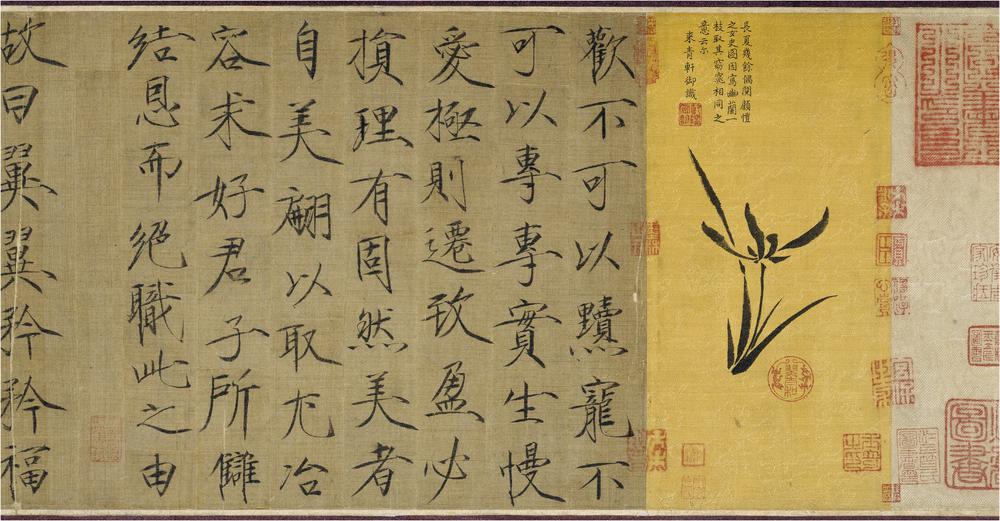 長夏幾餘偶閱顧愷
之女史圖因寫幽蘭一
枝取其窈窕相同之
意云尔
來青軒御識
歡不可以黷寵不
可以專專實生慢
愛極則遷致盈必
損理有固然美者
自美翩以取尤冶
容求好君子所讎
結恩而絕職此之由
故曰翼翼矜矜福